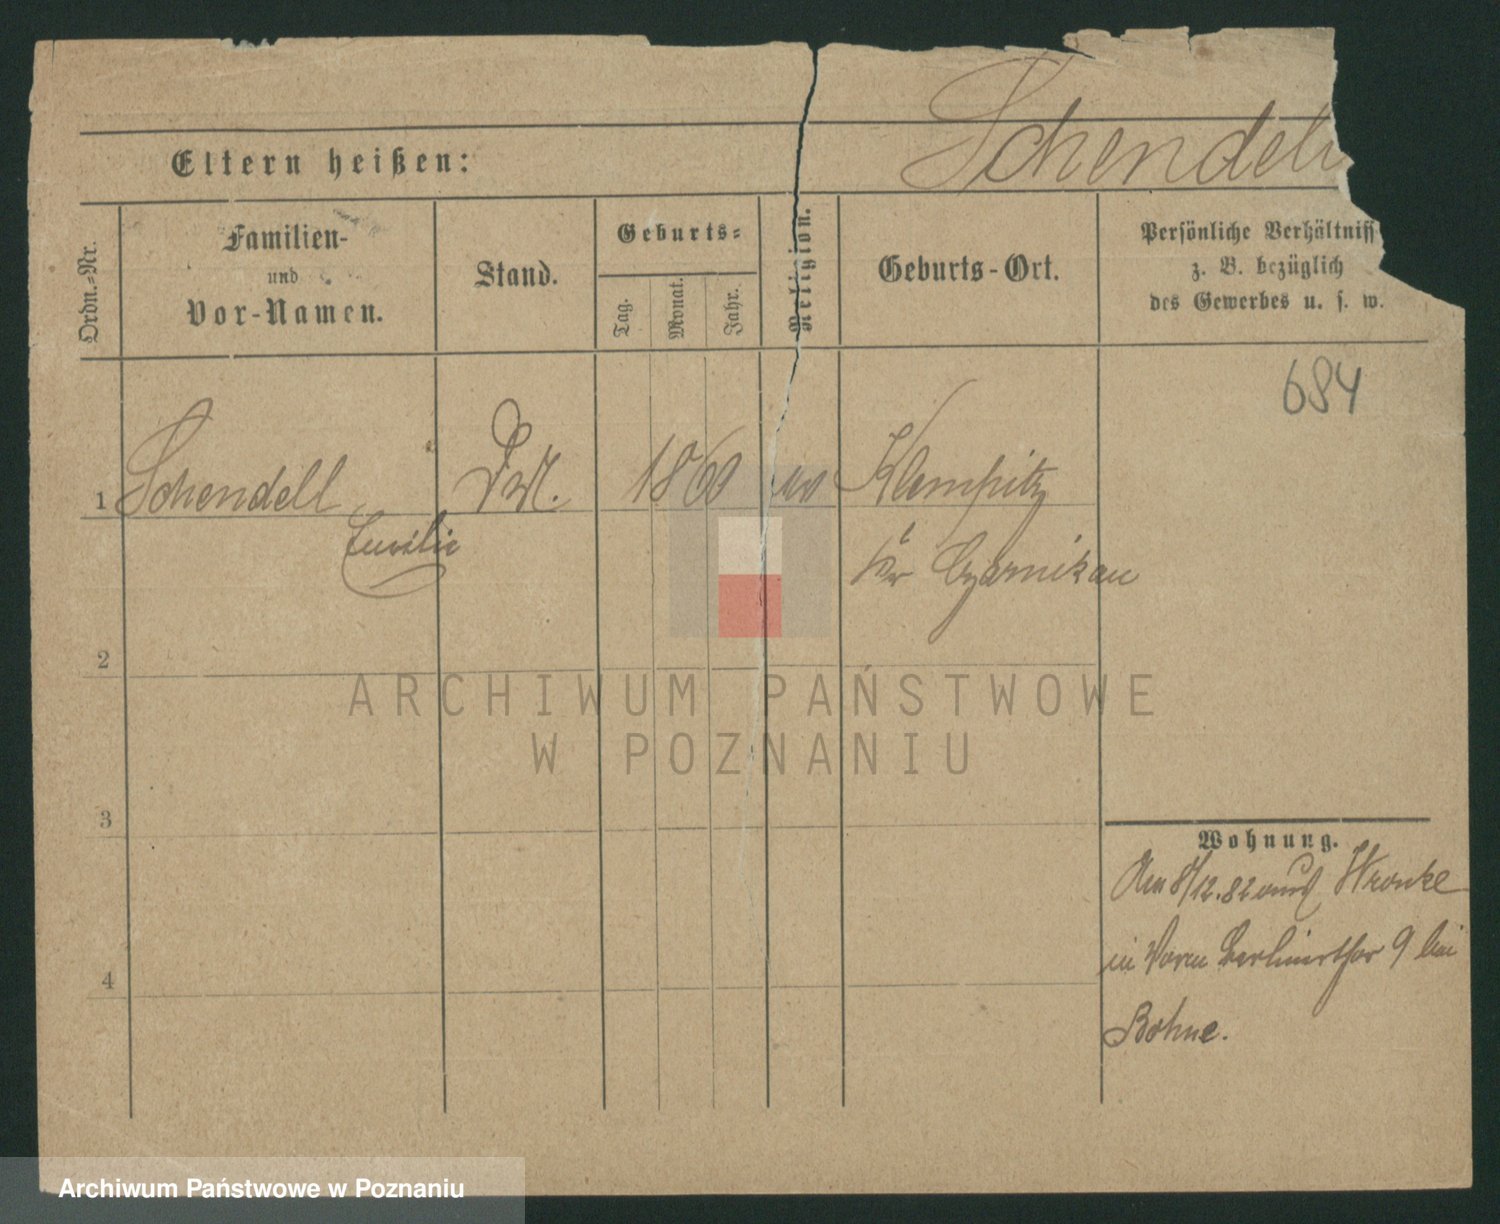 Schendell
Eltern heißen:
Ordn.-Nr.
Familien-
und
Vor-Namen.
Stand.
Geburts-
Tag.
Monat.
Jahr.
Religion.
Geburts-Ort.
Persönliche Verhältniss
z. B. bezüglich
des Gewerbes u. s. w.
684
1 Schendell 1860 Klempitz
Emilie
Kr Czarnikau
2
3
4
Wohnung.
Am 8/12.82 aus Wronke
in Vorm Berlinerthor 9 bei
Bohne.
ARCHIWUM PAŃSTWOWE
W POZNANIU
Archiwum Państwowe w Poznaniu